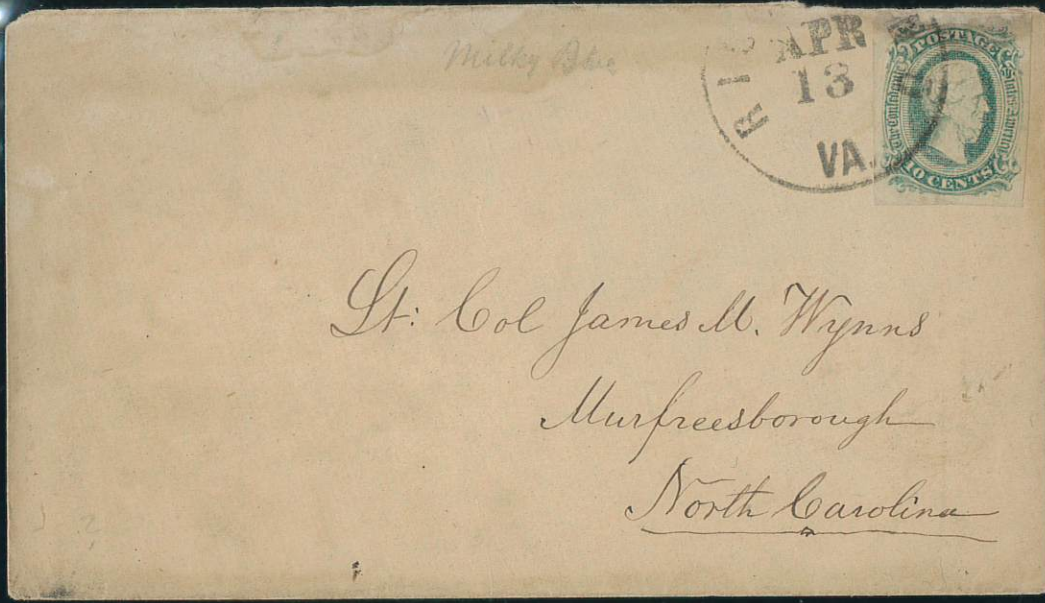 Milky Blue
RIC
APR
13
VA.
POSTAGE
The Confederate
States America
10 CENTS
Lt: Col James M. Wynns
Murfreesborough
North Carolina